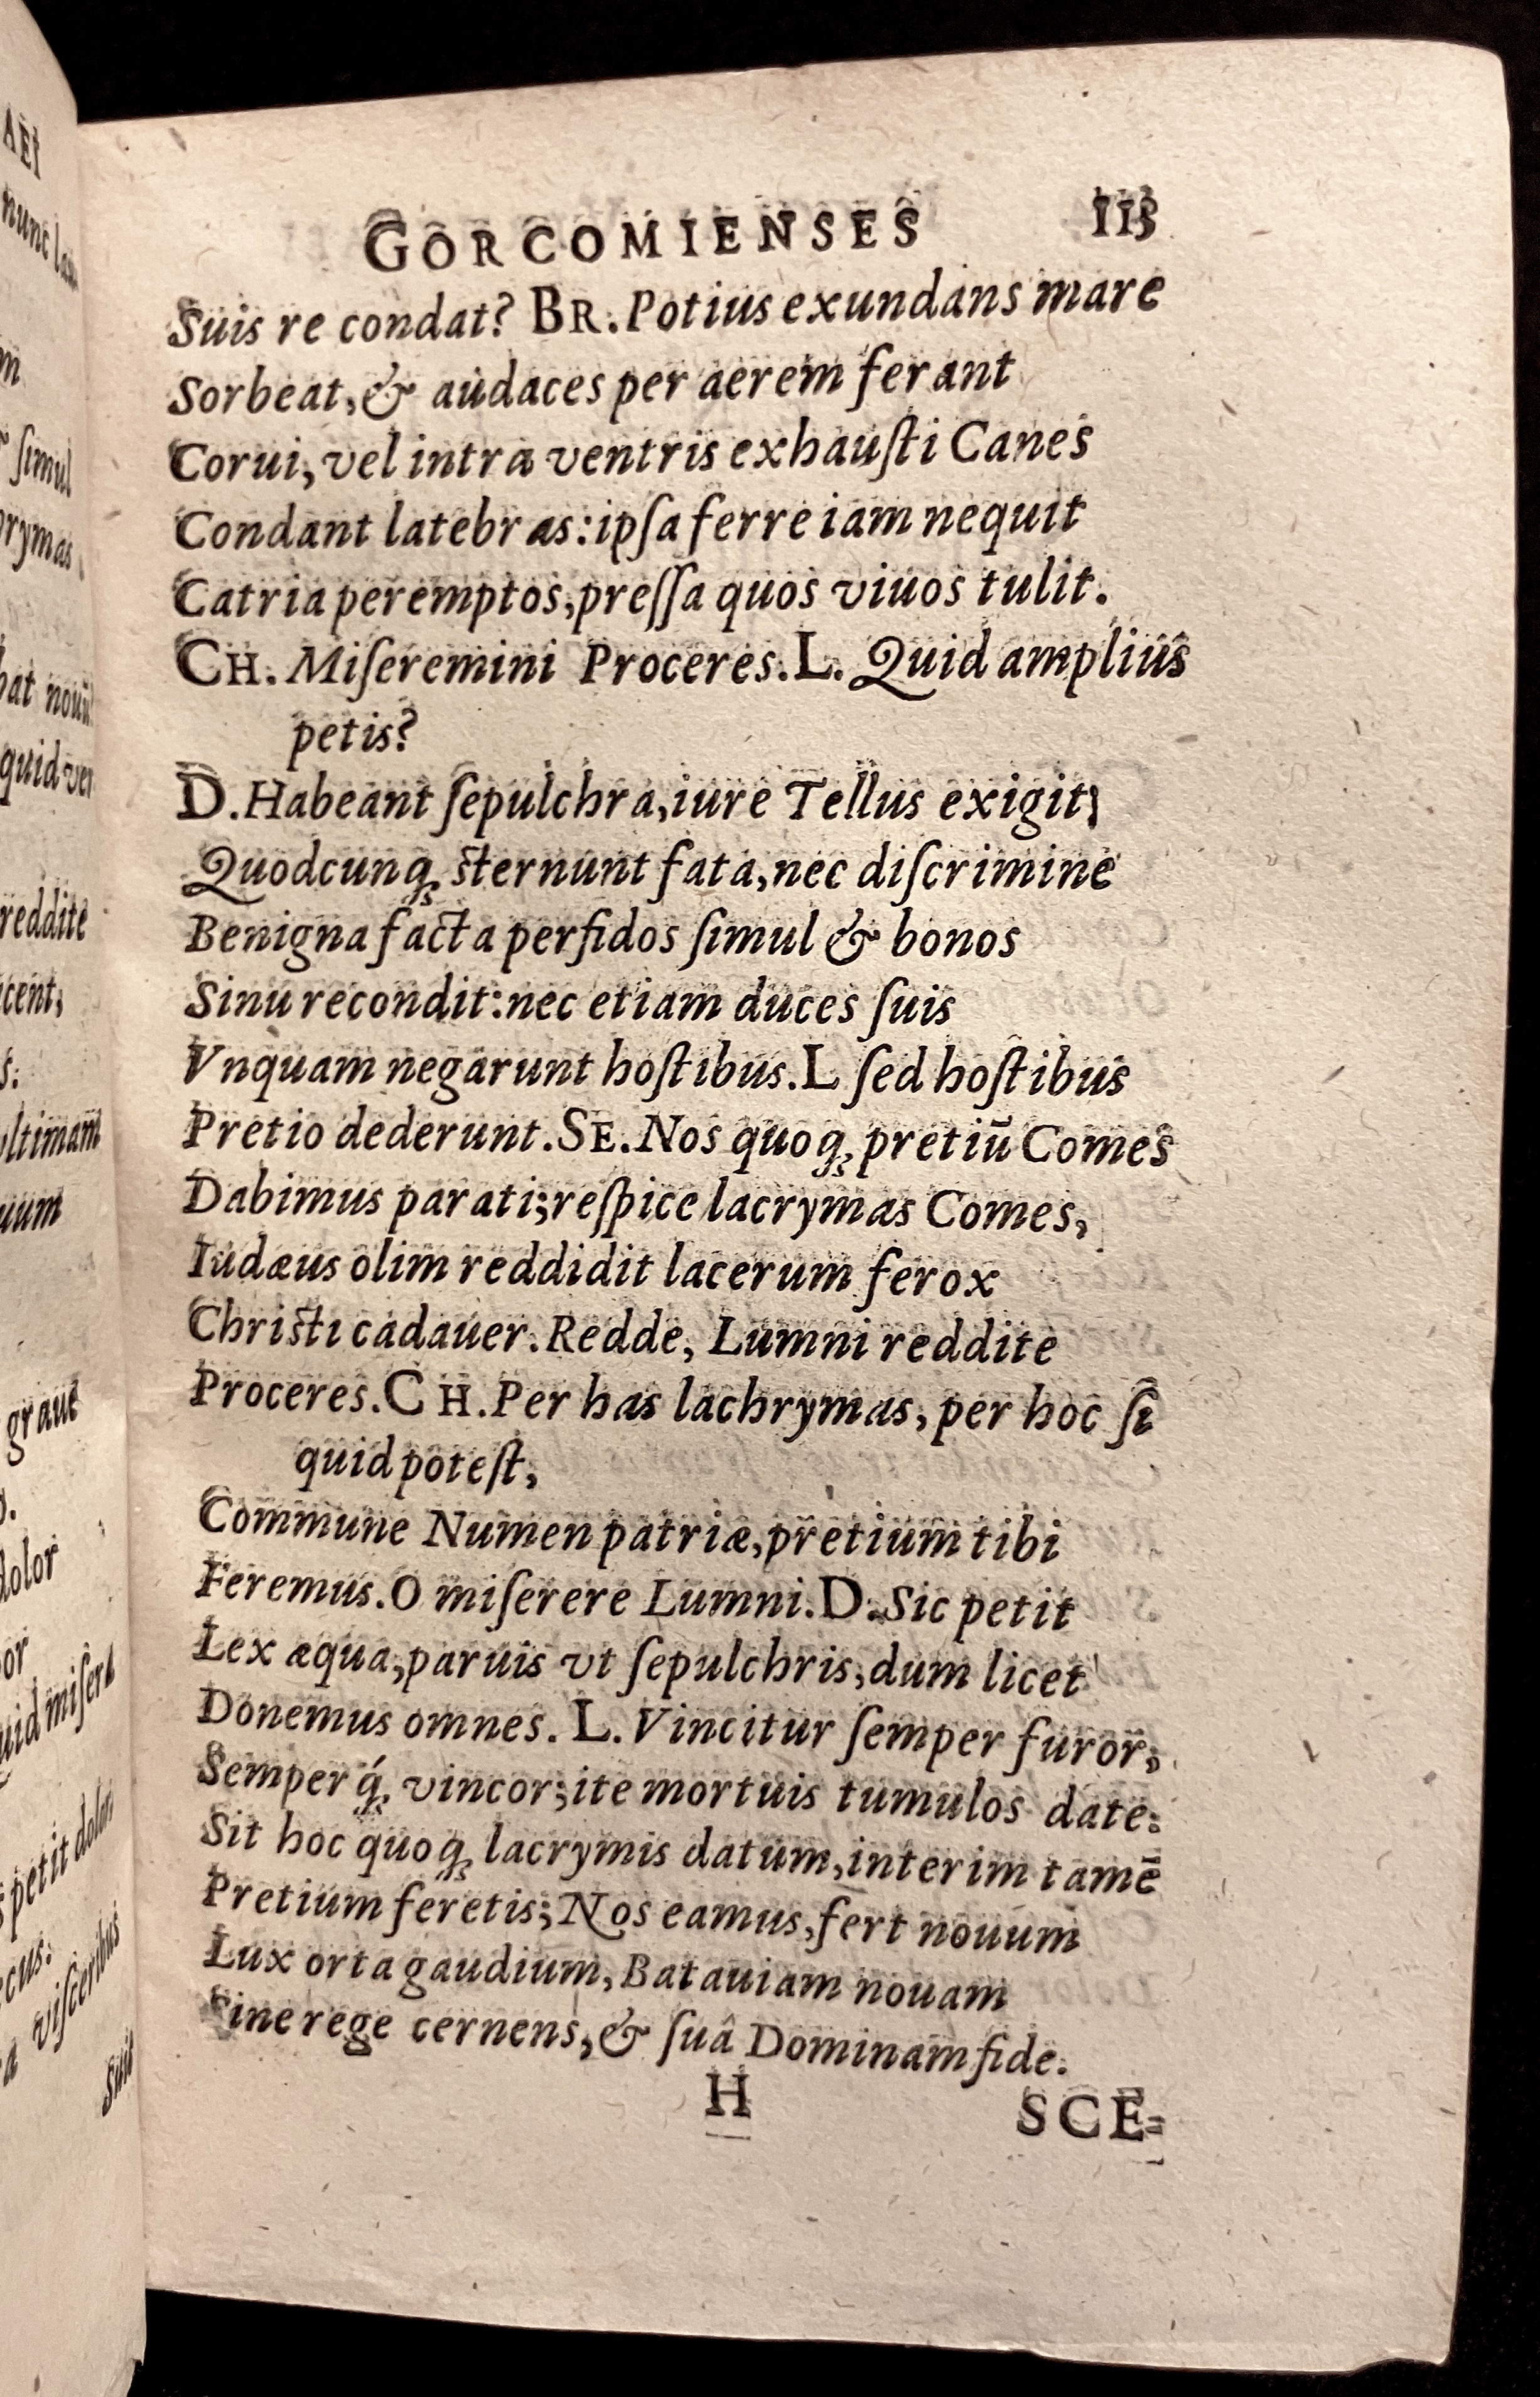 GORCOMIENSES 115
Suis re condat? BR. Potius exundans mare
Sorbeat, & audaces per aerem ferant
Corui, vel intra ventris exhauſti Canes
Condant latebras: ipſa ferre iam nequit
Catria peremptos, preſſa quos viuos tulit.
CH. Miſeremini Proceres. L. Quid ampliûs
petis?
D. Habeant ſepulchra, iure Tellus exigit;
Quodcunq; sternunt fata, nec diſcrimine
Benigna facta perfidos ſimul & bonos
Sinu recondit: nec etiam duces ſuis
Vnquam negarunt hoſtibus. L ſed hoſtibus
Pretio dederunt. SE. Nos quoq; pretiū Comes
Dabimus parati; reſpice lacrymas Comes,
Iudæus olim reddidit lacerum ferox
Christi cadauer. Redde, Lumni reddite
Proceres. CH. Per has lachrymas, per hoc ſi
quid poteſt,
Commune Numen patriæ, pretium tibi
Feremus. O miſerere Lumni. D. Sic petit
Lex æqua, paruis vt ſepulchris, dum licet
Donemus omnes. L. Vincitur ſemper furor,
Semper q́; vincor; ite mortuis tumulos date:
Sit hoc quoq; lacrymis datum, interim tamē
Pretium feretis; Nos eamus, fert nouum
Lux orta gaudium, Batauiam nouam
Sine rege cernens, & ſuâ Dominam fide.
H SCE-
AEI
nunc
ſimul
reddite
ultimam
graue
dolor
miſera
petit
viſceribus
Suis